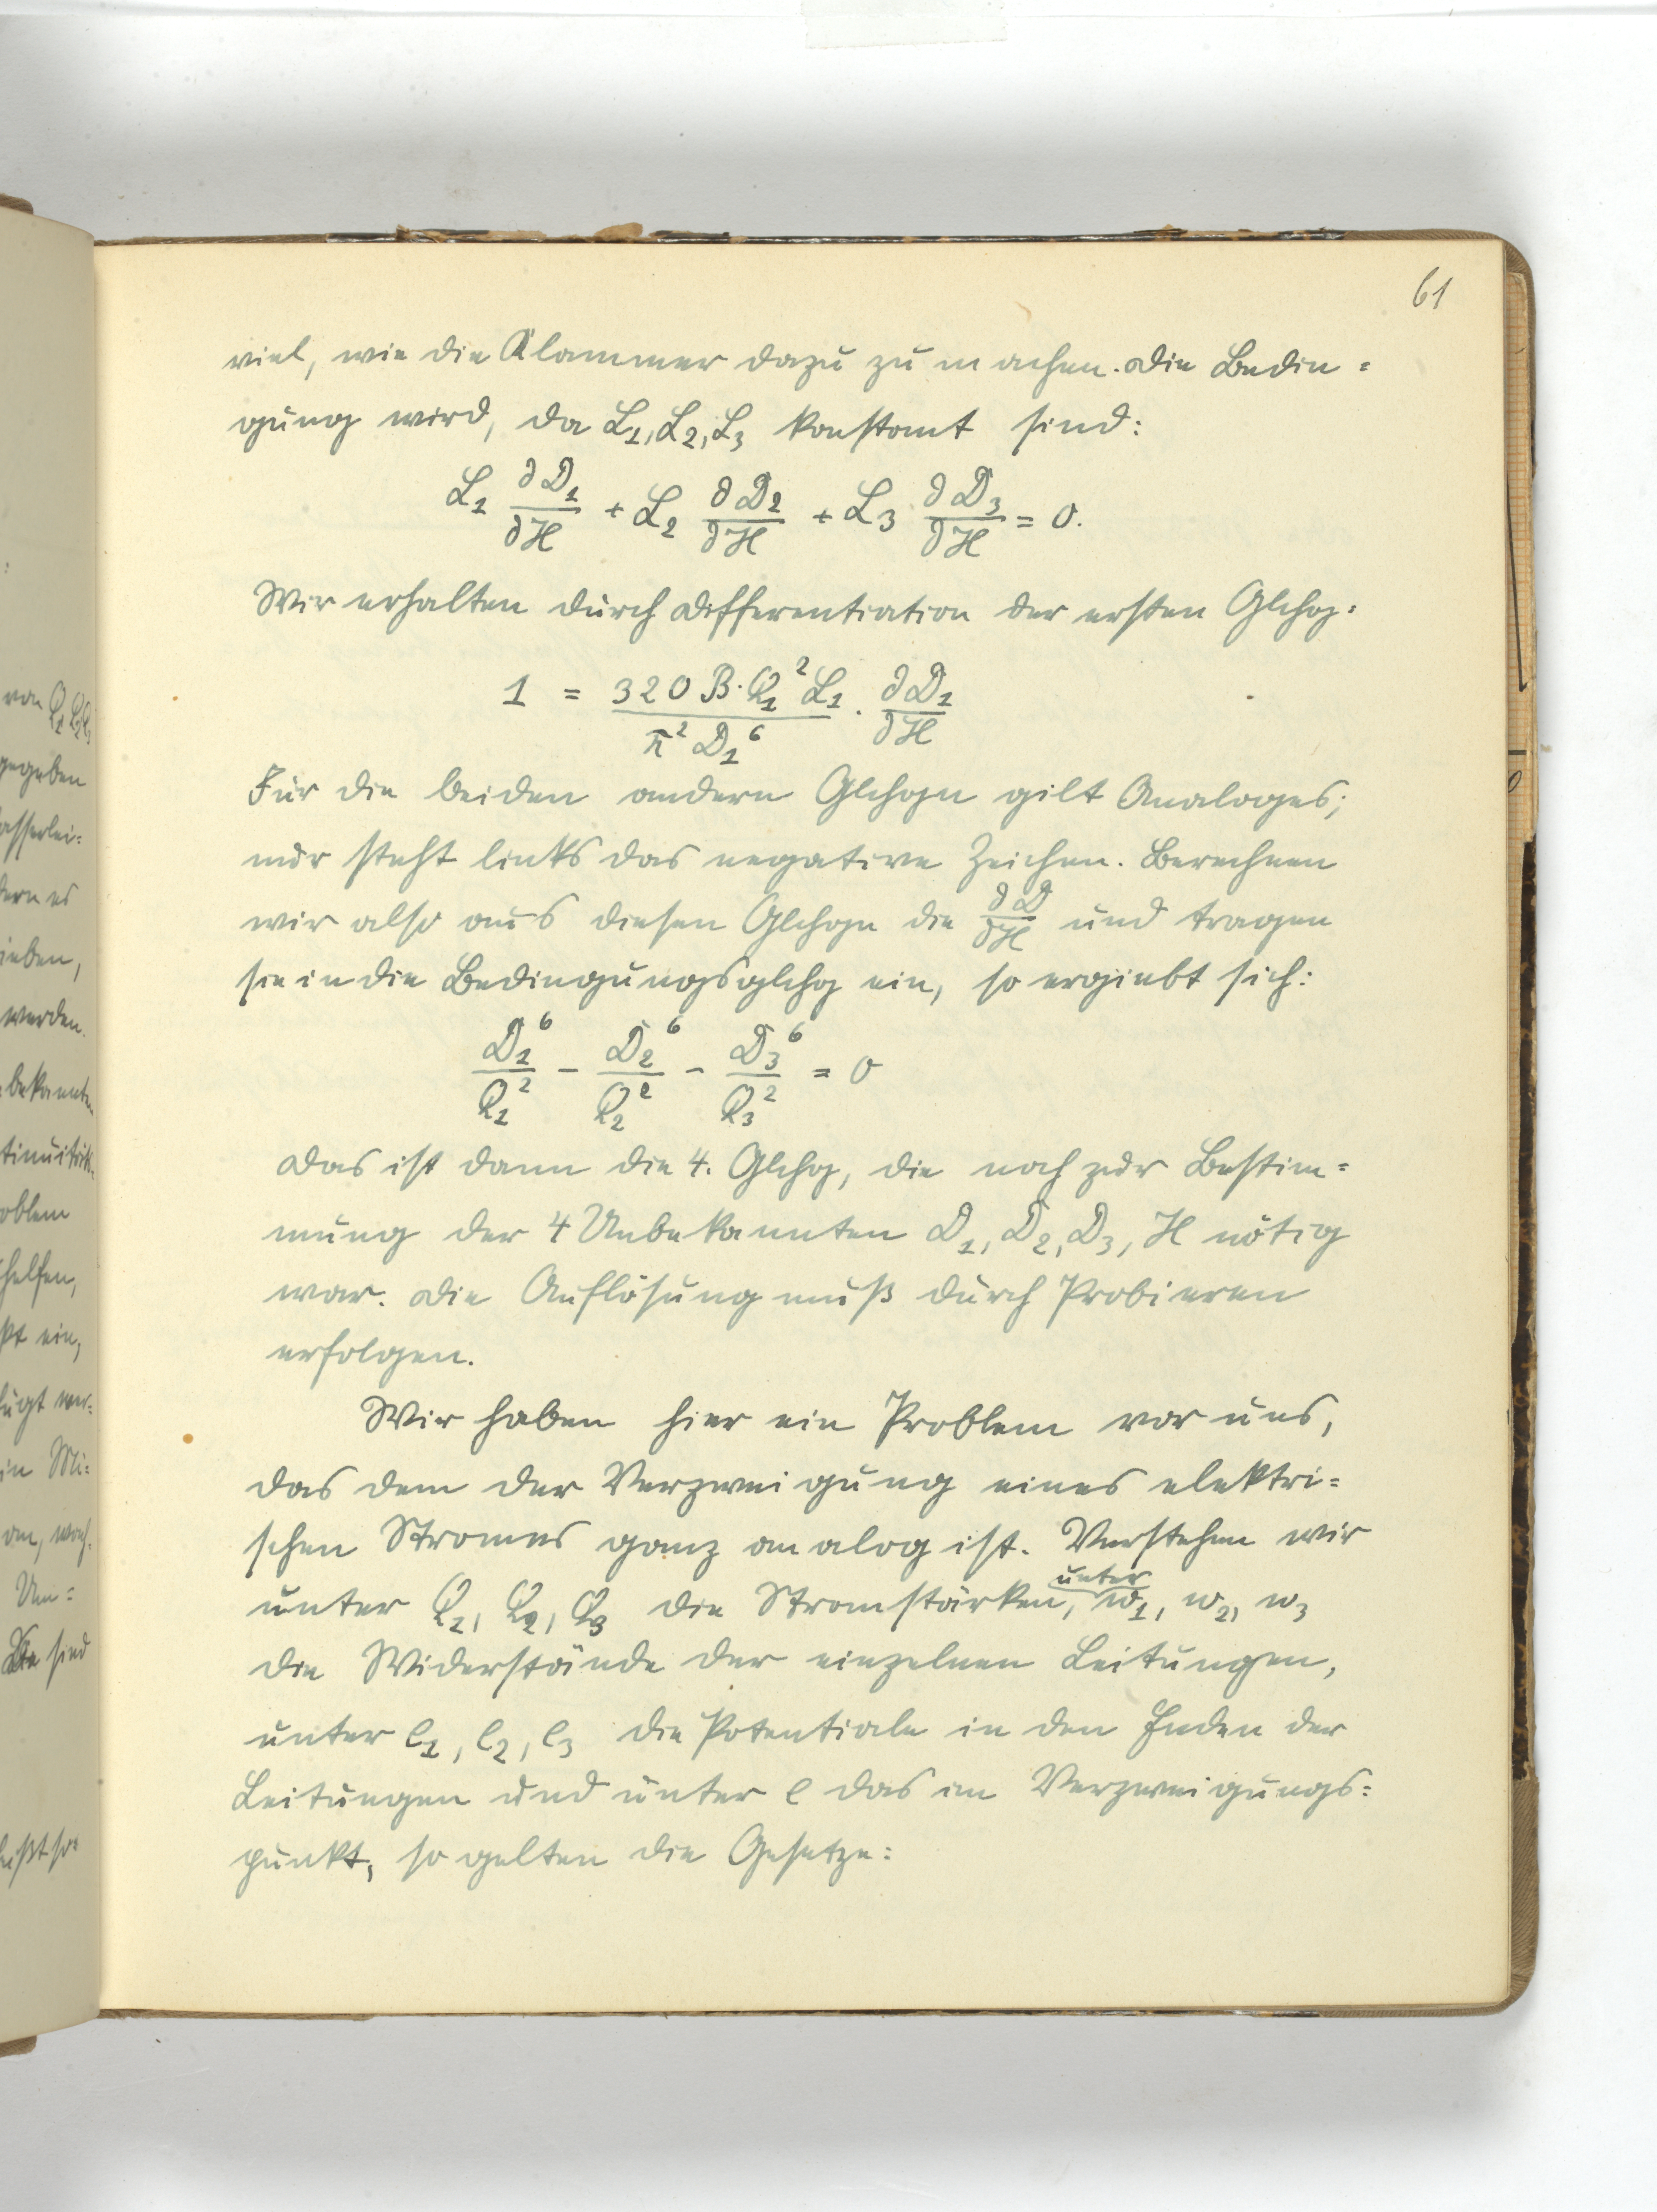 61
viel, wie die Klammer dazu zu machen. Die Bedin=
gung wird, da L₁, L₂, L₃ konstant sind:
L₁ ∂D₁/∂H + L₂ ∂D₂/∂H + L₃ ∂D₃/∂H = 0.
Wir erhalten durch Differentiation der ersten Glchg:
1 = 320 B·Q₁² L₁ / π² D₁⁶ · ∂D₁/∂H
Für die beiden andern Glchgn gilt Analoges;
nur steht links das negative Zeichen. Berechnen
wir also aus diesen Glchgn die ∂D/∂H und tragen
sie in die Bedingungsglchg ein, so ergiebt sich:
D₁⁶/Q₁² - D₂⁶/Q₂² - D₃⁶/Q₃² = 0
Das ist dann die 4. Glchg, die noch zur Bestim=
mung der 4 Unbekannten D₁, D₂, D₃, H nötig
war. Die Auflösung muß durch Probieren
erfolgen.
Wir haben hier ein Problem vor uns,
das dem der Verzweigung eines elektri=
schen Stromes ganz analog ist. Verstehen wir
unter Q₁, Q₂, Q₃ die Stromstärken, unter w₁, w₂, w₃
die Widerstände der einzelnen Leitungen,
unter e₁, e₂, e₃ die Potentiale in den Enden der
Leitungen und unter e das im Verzweigungs=
punkt, so gelten die Gesetze:
von Q₁ Q₂ Q₃
gegeben
asserlei=
dern es
ieben,
werden.
bekannten
oblem
helfen,
ßt ein,
fügt wer=
in Mi=
Um=
sind